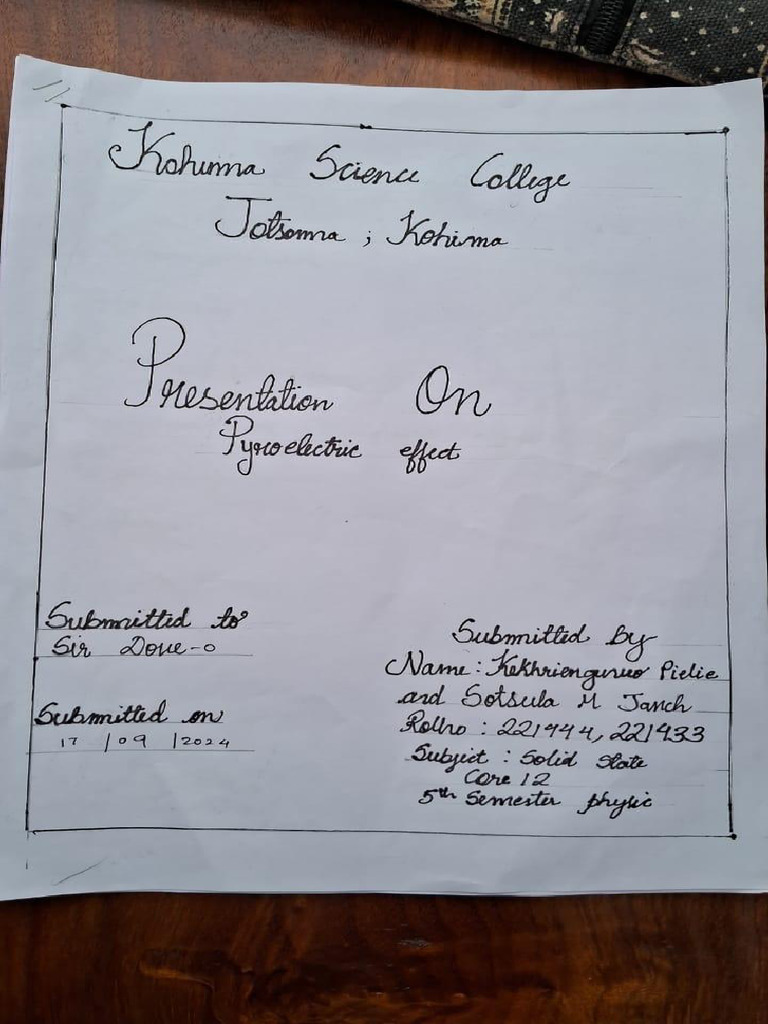 Kohima Science College
Jotsoma ; Kohima
Presentation On
Pyroelectric effect
Submitted to
Sir
Submitted on
17 /09 /2024
Submitted by
Name : Pielie
and Sotsula M
Rollno : 221444, 221433
Subject : Solid state
Core 12
5th Semester physic